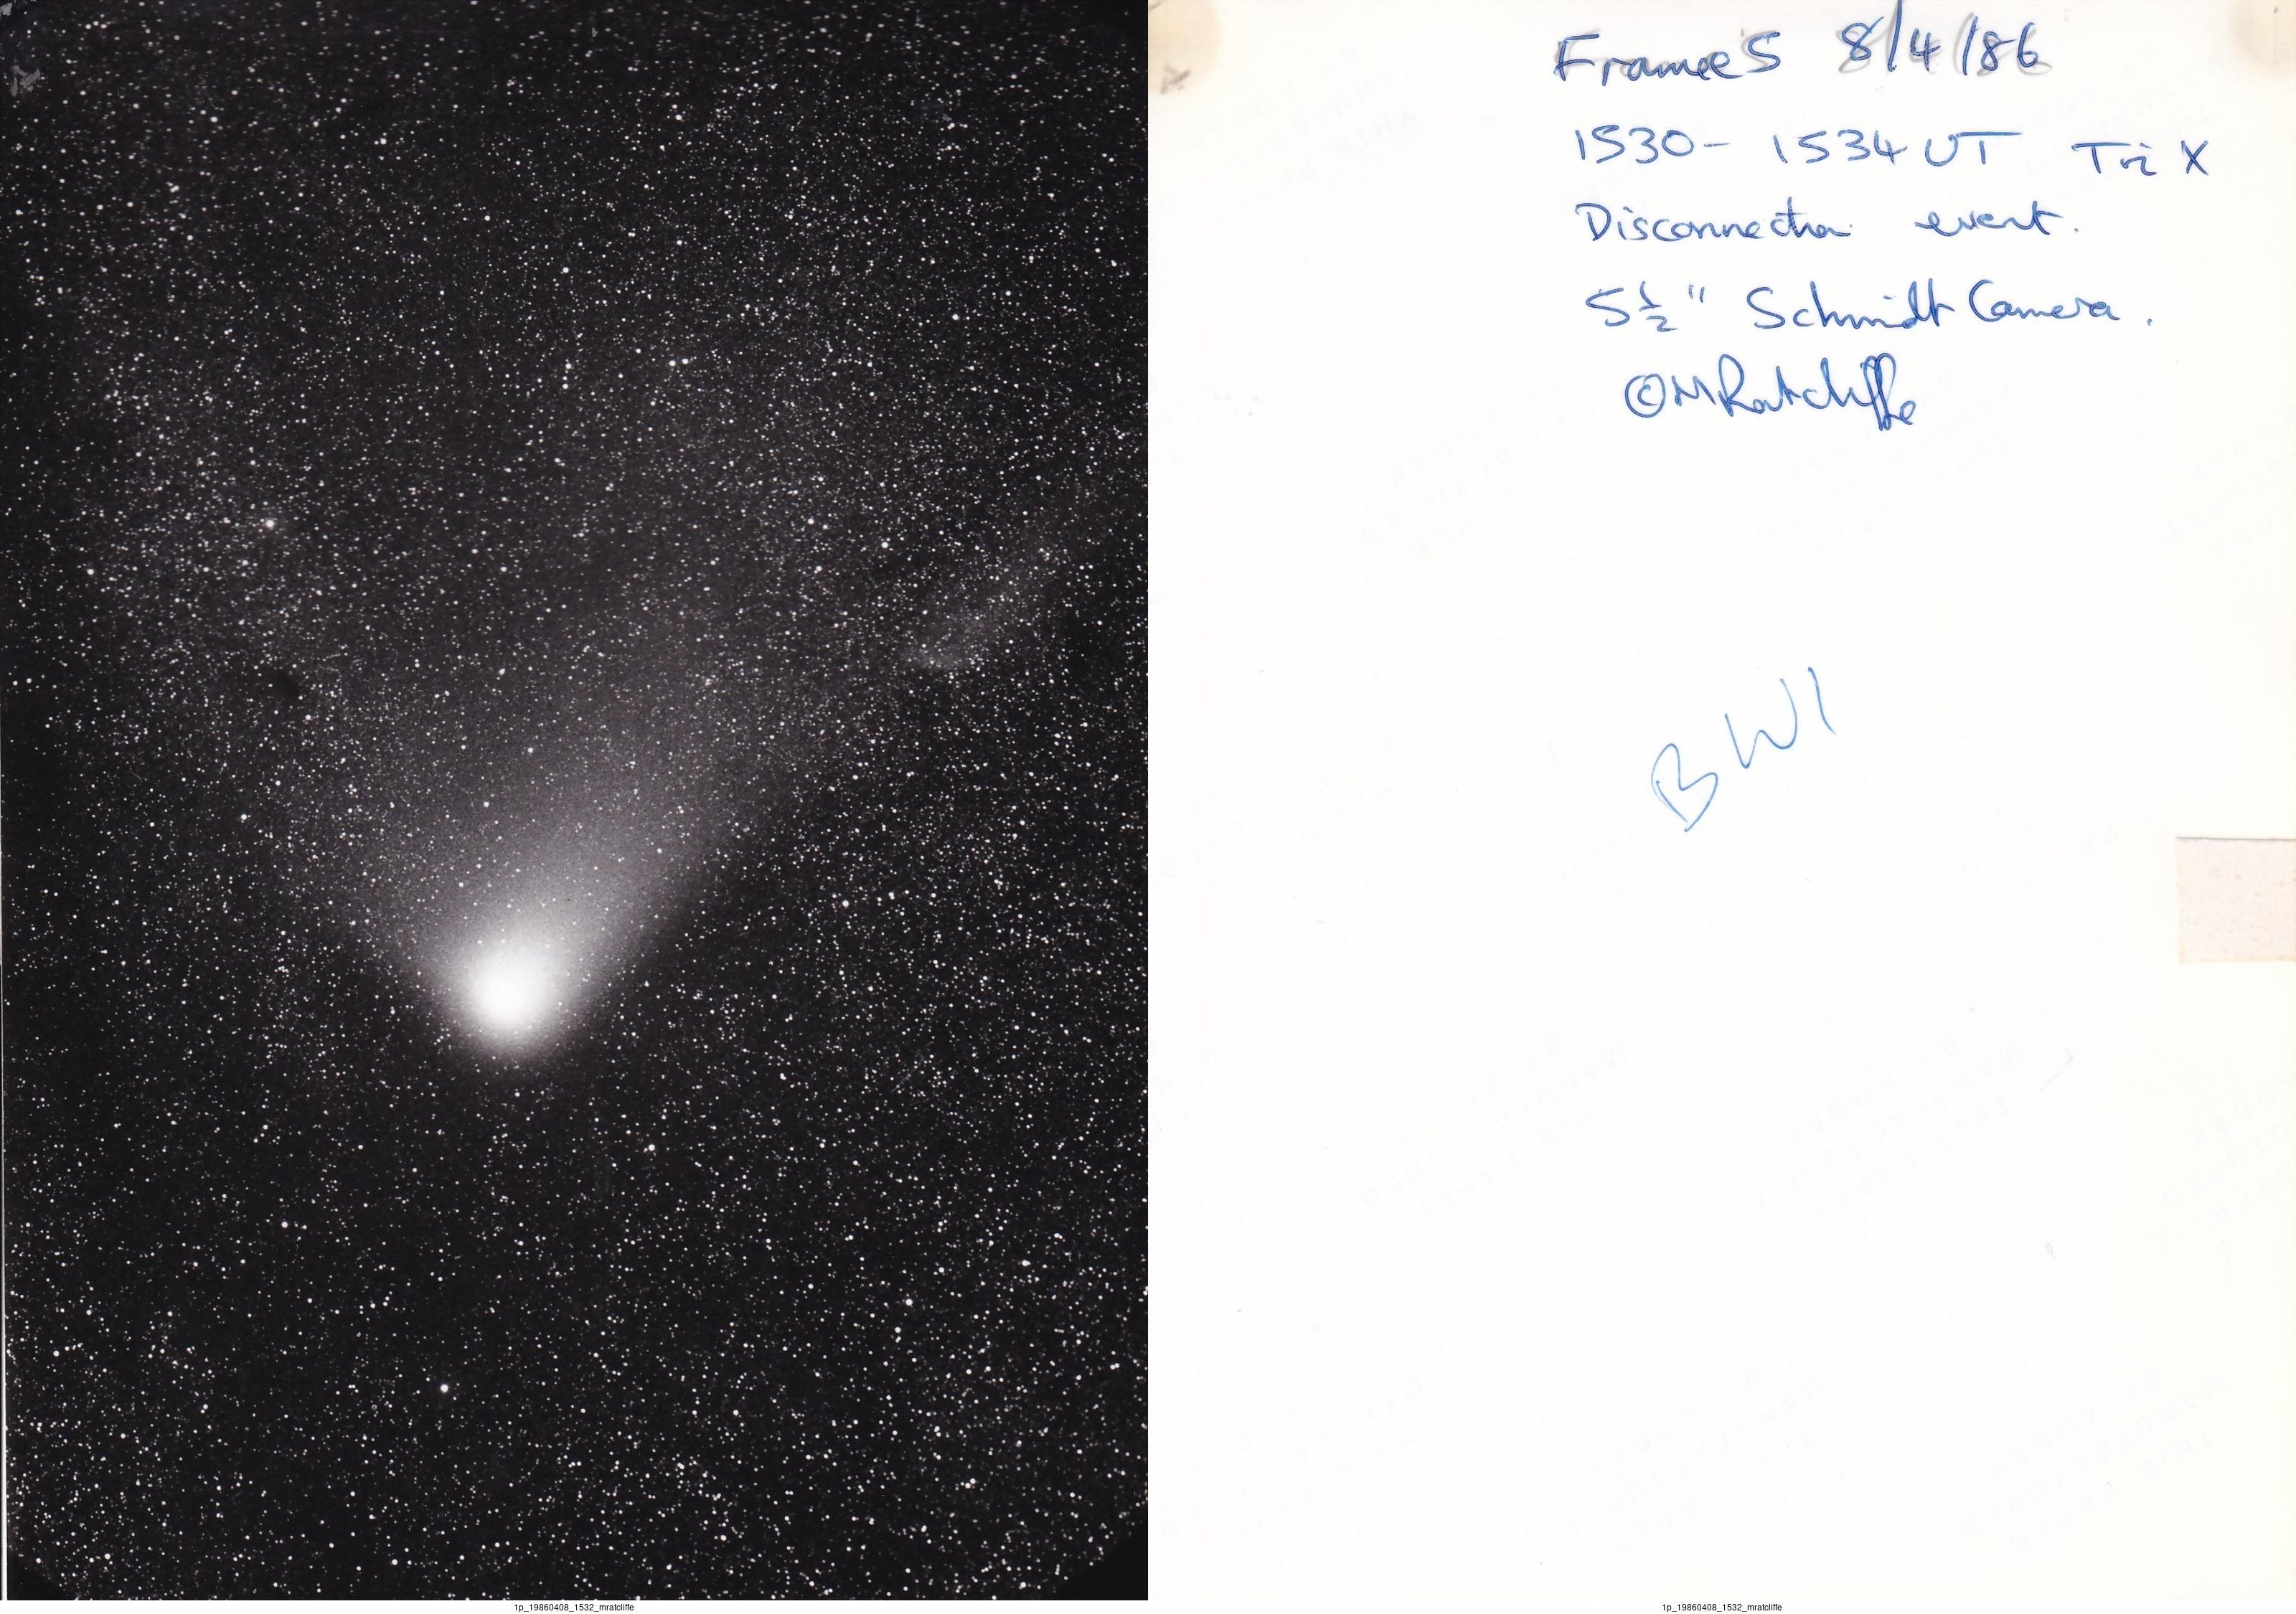 Frame 5 8/4/86
1530 - 1534 UT Tri X
Disconnection event.
5½" Schmidt Camera.
© M Ratcliffe
BW1
1p_19860408_1532_mratcliffe
1p_19860408_1532_mratcliffe